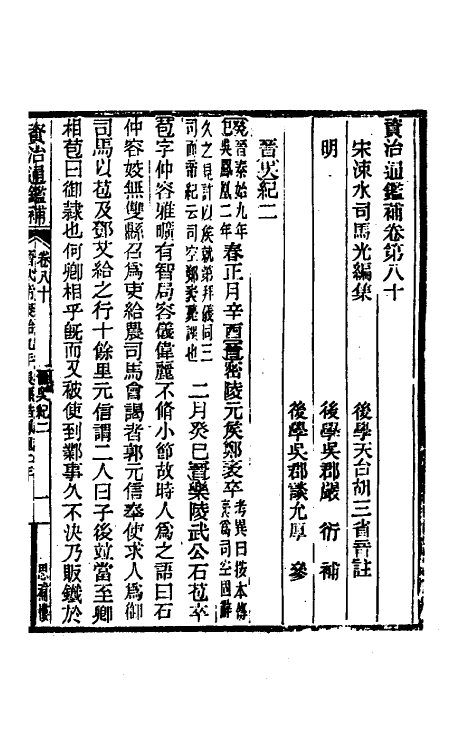 資治通鑑補卷第八十
宋涑水司馬光編集
後學天台胡三省音註
明
後學吳郡嚴 衍 補
後學吳郡談允厚 參
晉史紀二
癸晉泰始九年
巳吳鳳凰二年
春正月辛酉晉密陵元侯鄭袤卒
考異曰按本傳
袤為司空固辭
久之見許以侯就第拜儀同三
司而帝紀云司空鄭袤薨誤也
二月癸巳晉樂陵武公石苞卒
苞字仲容雅曠有智局容儀偉麗不脩小節故時人為之語曰石
仲容姣無雙縣召為吏給農司馬會謁者郭元信奉使求人為御
司馬以苞及鄧艾給之行十餘里元信謂二人曰子後竝當至卿
相苞曰御隸也何卿相乎旣而又被使到鄴事久不決乃販鐵於
資治通鑑補
卷八十
晉史紀二
一
思補樓